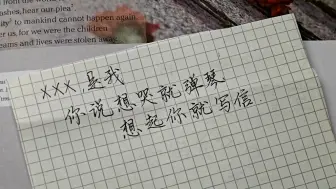 ashes, hear our plea"
to mankind cannot happen again.
us, for we were the children
dreams and lives were stolen away.
XXX,是我
你说想哭就弹琴
想起你就写信